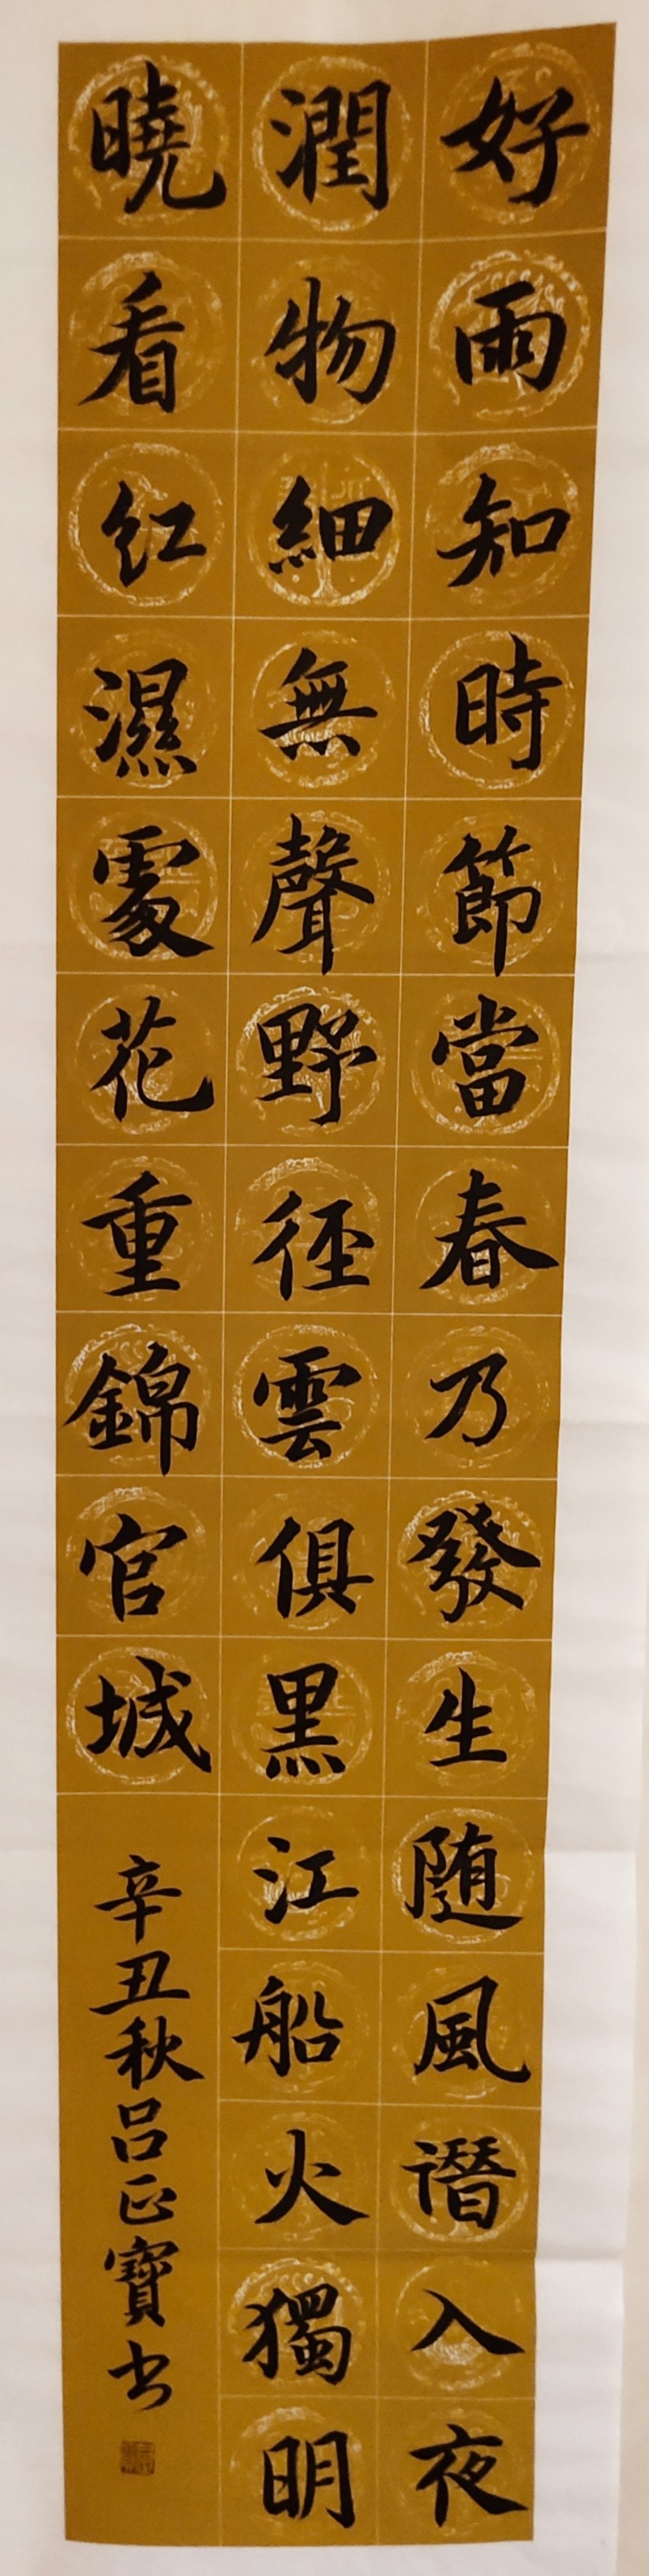 好雨知時節當春乃發生随風譖入夜
潤物細無聲野径雲俱黑江船火獨明
曉看红濕處花重錦官城
辛丑秋吕正寶书